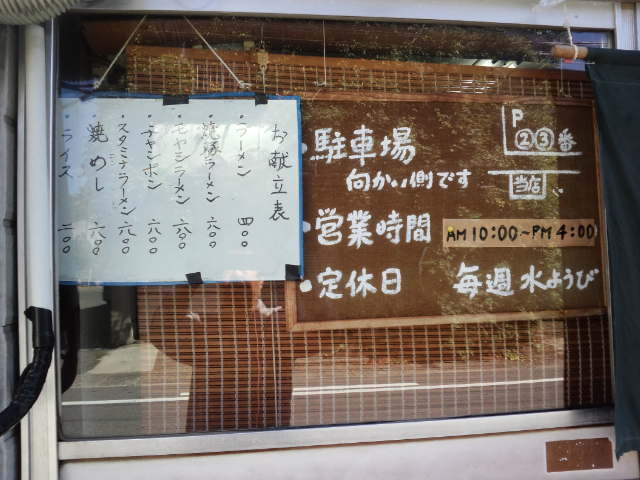 お献立表
・ラーメン 四〇〇
・焼豚ラーメン 六〇〇
・モヤシラーメン 六〇〇
・チャンポン 六〇〇
・スタミナラーメン 六〇〇
・焼めし 六〇〇
・ライス 二〇〇
・駐車場
向かい側です
P
②③番
当店
・営業時間 AM10:00~PM4:00
・定休日 毎週水ようび